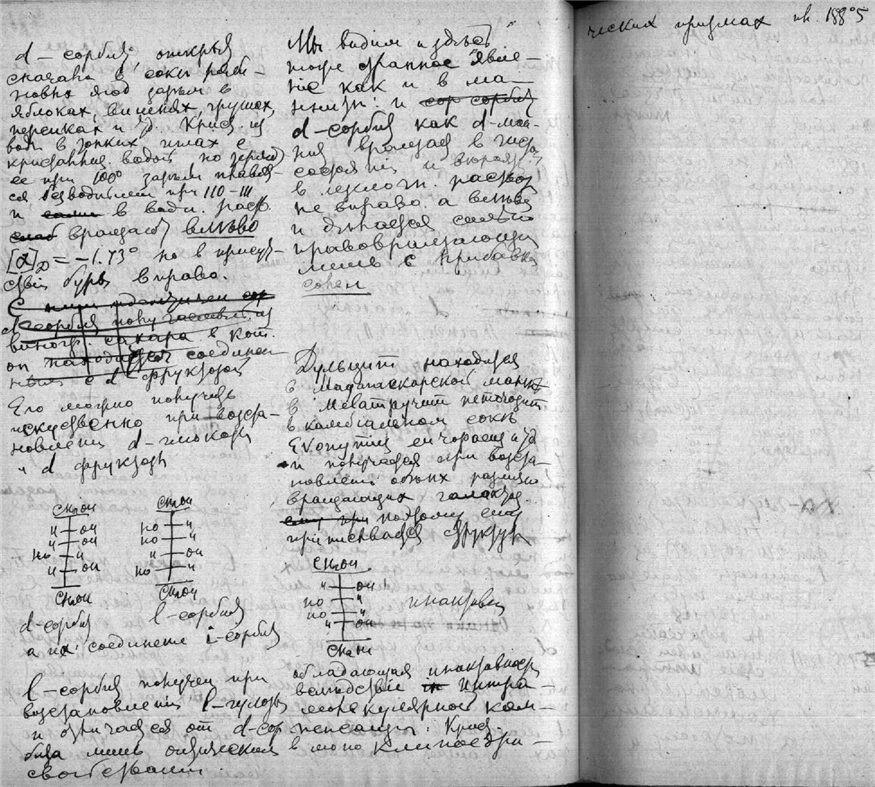 d-сорбит, открытый
сначала в соку ряби-
новых ягод затем в
яблоках, вишнях, грушах,
персиках и т.д. Крист. из
воды в тонких иглах с
кристаллиз. водой, но теряет
ее при 100° затем плавит-
ся безводный при 110-111
и в водн. раств.
вращает влѣво
[α]D = -1.73° но в присут-
ствии буры вправо.
виногр. сахара в кот.
он находится соединен-
ным с d-фруктозой
Его можно получить
искусственно при возста-
новлении d-глюкозы
и d фруктозы
CH₂OH CH₂OH
H OH HO H
H OH HO H
HO H H OH
H OH HO H
CH₂OH CH₂OH
d-сорбит l-сорбит
а их соединение i-сорбит
l-сорбит получен при
возстановлении l-гулозы
и отличается от d-сор-
бита лишь оптическими
свойствами
Мы видим и здѣсь
тоже странное явле-
ние как и в ма-
ните: и сор сорбит
d-сорбит как d-ман-
нит вращает в чист.
состоянии и
в раствор
не вправо а влѣво
и дѣлается слабо
правовращающим
лишь с прибавкой
солей
Дульцит находится
в Мадагаскарской манне
в
в камбиальном соке
Evonymus europaeus и т.д.
и получается при возста-
новлении обоих различно
вращающих галактоз.
поэтому ему
приписывается структура
CH₂OH
H OH
HO H
HO H
H OH
CH₂OH
инактивен
обладающая инактивностью
вслѣдствие интра-
молекулярной ком-
пенсации. Крист.
в моноклиноэдри-
ческих призмах пл. 188°5